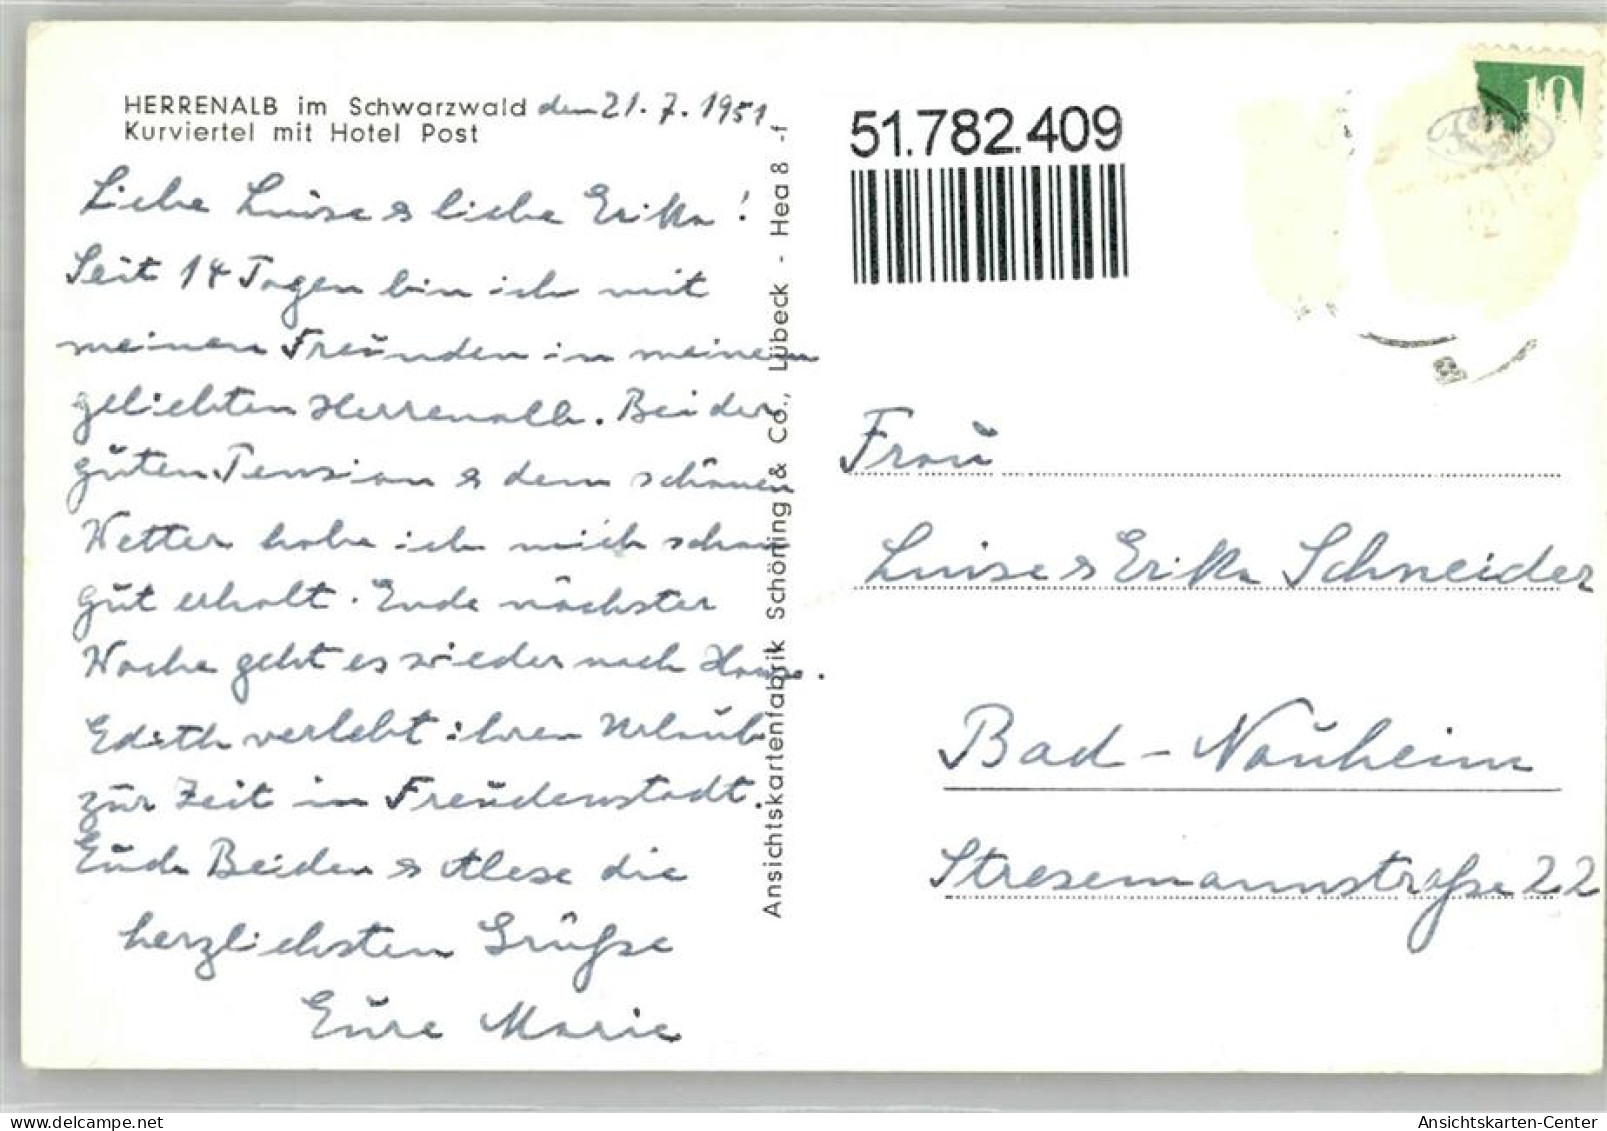 HERRENALB im Schwarzwald den 21. 7. 1951
Kurviertel mit Hotel Post
Liebe Luise & liebe Erika!
Seit 14 Tagen bin ich mit
meinen Freunden in meinem
geliebten Herrenalb. Bei der
guten Pension & dem schönen
Wetter habe ich mich schon
gut erholt. Ende nächster
Woche geht es wieder nach Hause.
Edith verlebt ihren Urlaub
zur Zeit in Freudenstadt.
Euch Beiden & Alese die
herzlichsten Grüße
Eure Marie
Ansichtskartenfabrik Schöning & Co., Lübeck - Hea 8 -f
51.782.409
10
Frau
Luise & Erika Schneider
Bad-Nauheim
Stresemannstraße 22
hip-hip-post
Ansichtskarten-Center